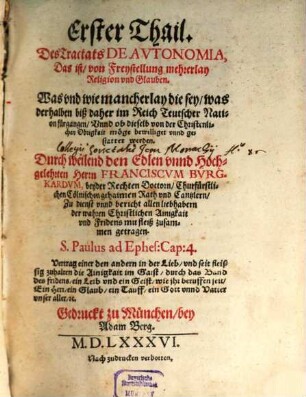 Erster Thail.
Des Tractats DE AVTONOMIA,
Das ist/ von Freystellung mehrerlay
Religion vnd Glauben.
Was vnd wie mancherlay die sey/ was
derhalben biß daher im Reich Teutscher Nati-
on fürgangen/ Vnnd ob dieselb von der Christenli-
chen Obrigkait möge bewilliget vnnd ge-
stattet werden.
Durch weilend den Edlen vnnd Hoch-
gelehrten Herrn FRANCISCVM BVRG-
KARDVM, beyder Rechten Doctorn/ Churfürstli-
chen Cölnischen gehaimen Rath vnd Cantzlern/
Zu dienst vnnd bericht allen liebhabern
der wahrn Christlichen Ainigkait
vnd Fridens mit fleiß zusam-
men getragen.
S. Paulus ad Ephes: Cap: 4.
Vertrag einer den andern in der Lieb/ vnd seit fleis-
sig zuhalten die Ainigkait im Gaist/ durch das Band
des fridens, ein Leib vnd ein Geist, wie jhr beruffen seit/
Ein Herr/ ein Glaub/ ein Tauff/ ein Gott vnnd Vatter
vnser aller, &c.
Gedruckt zu München/ bey
Adam Berg.
M.D.LXXXVI.
Nach zudrucken verbotten.
Bayerische
Staatsbibliothek
MÜNCHEN